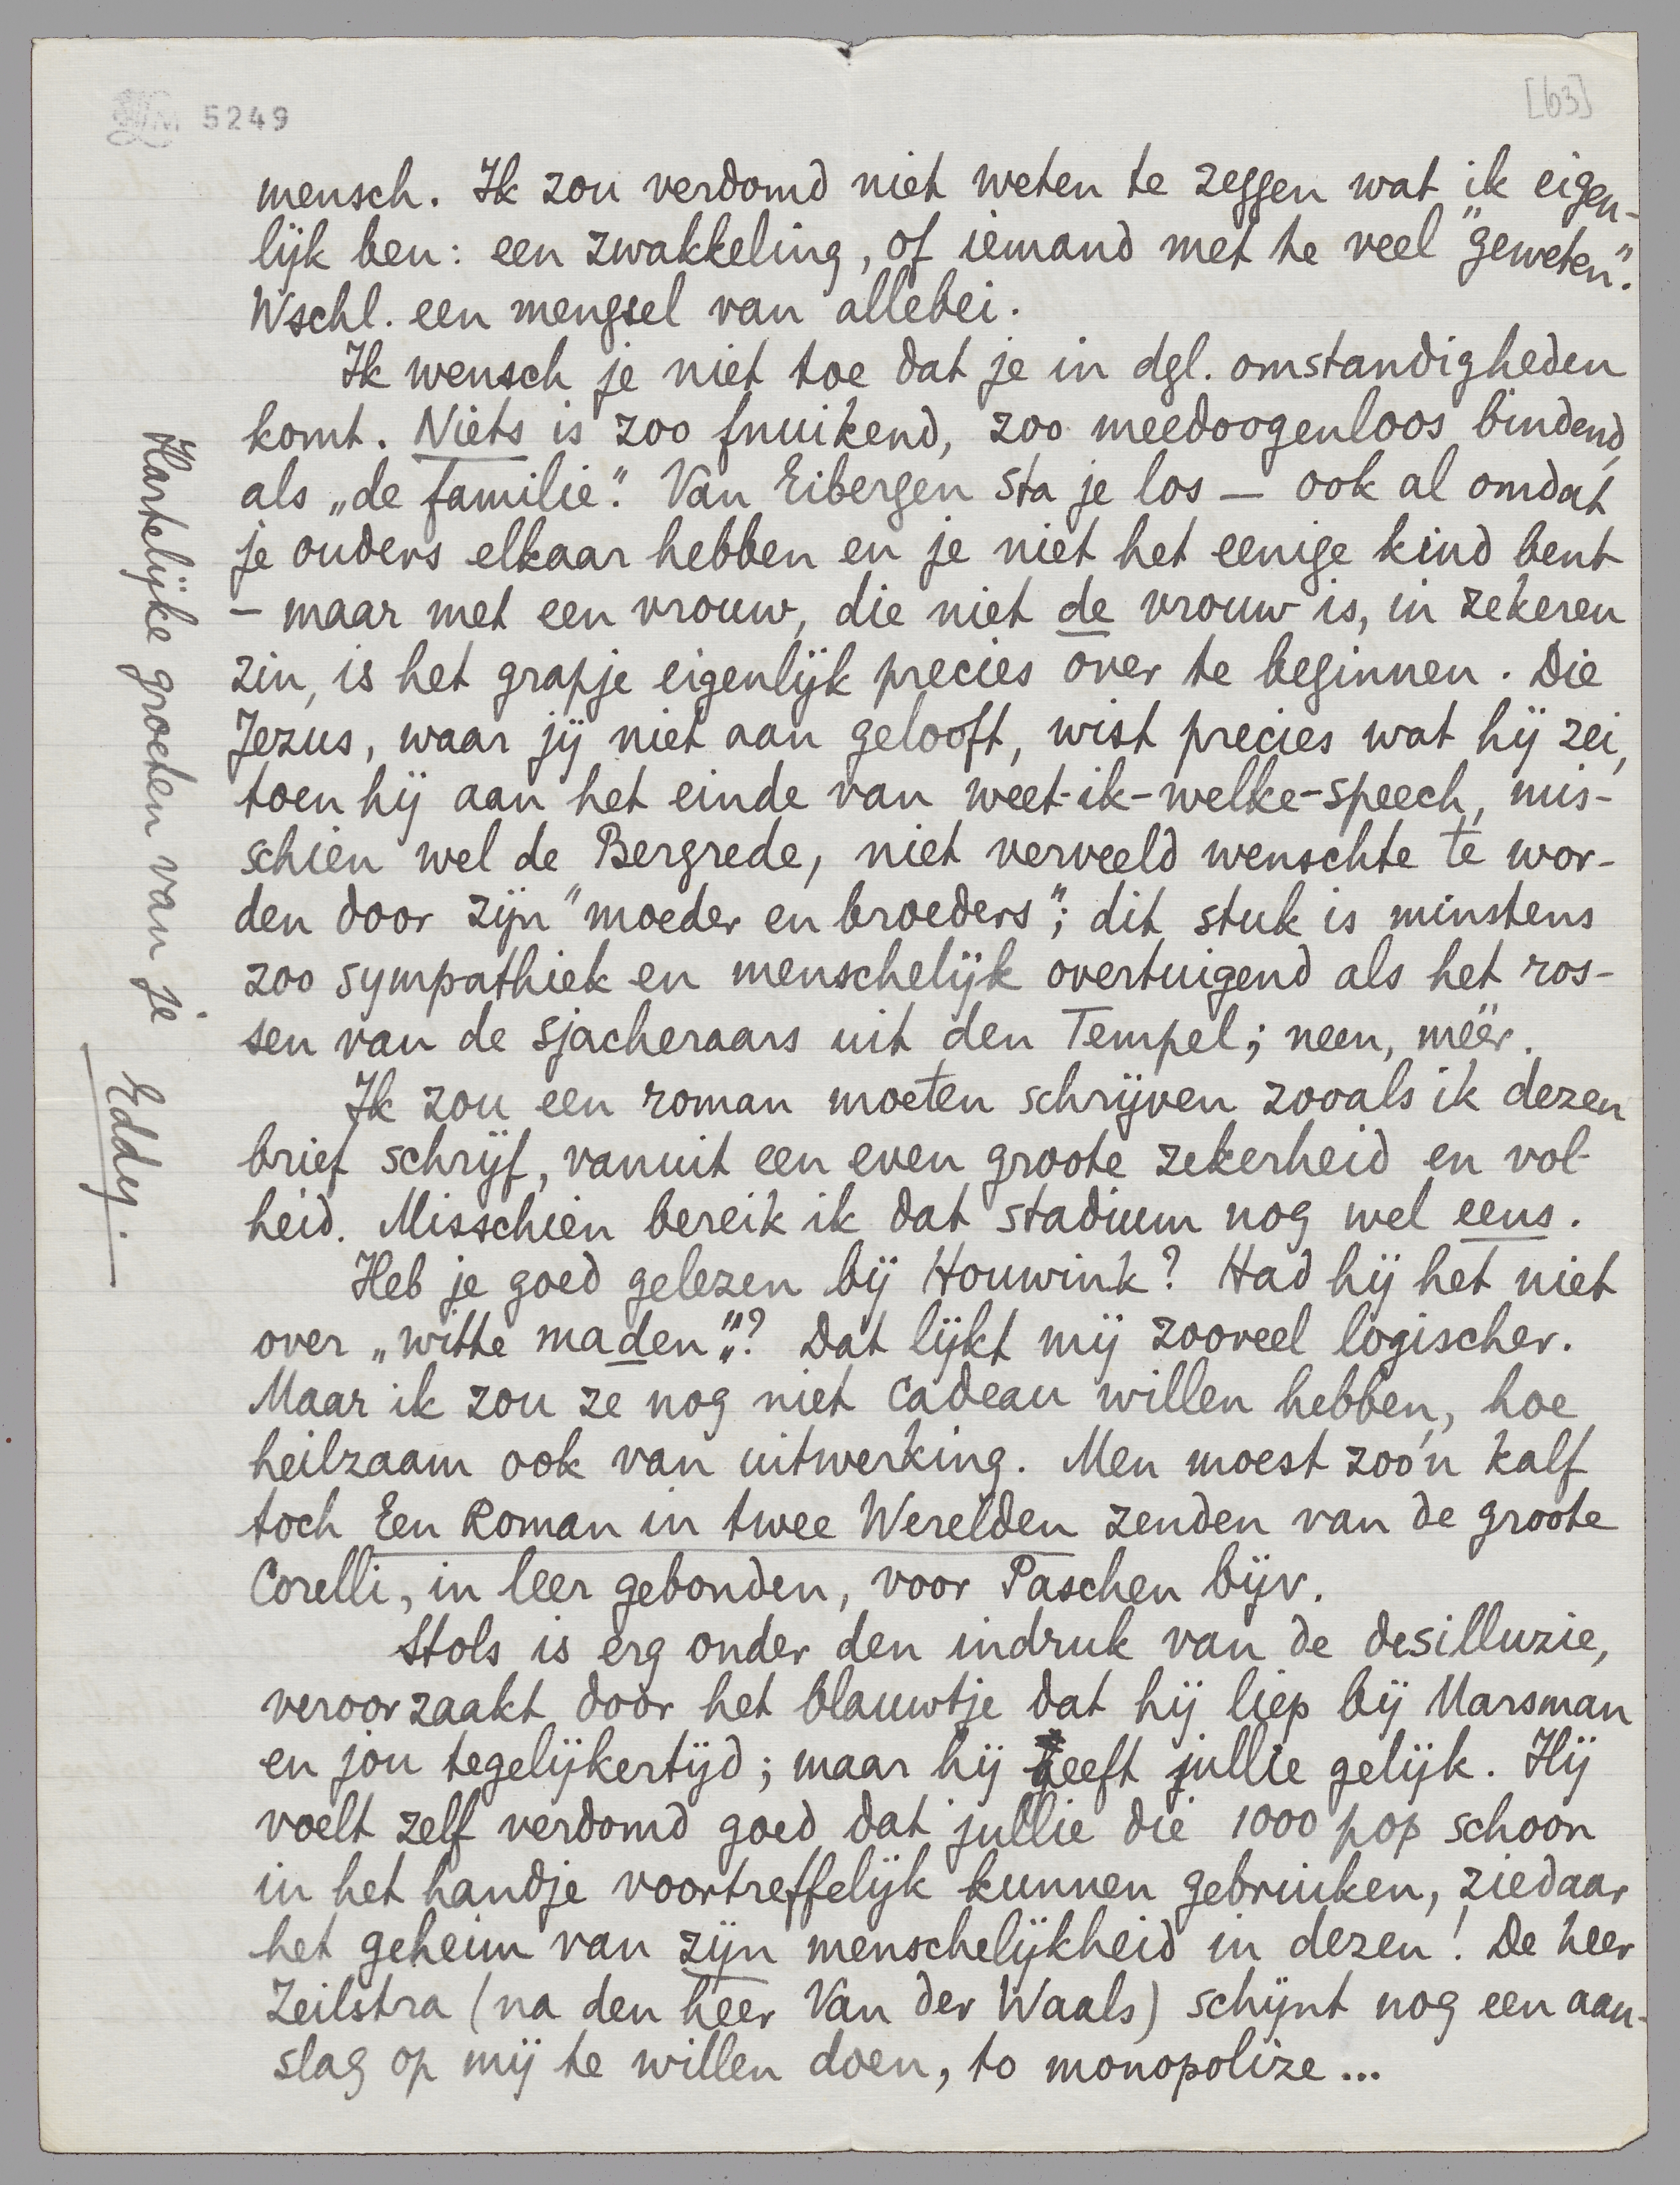 5249
[63]
mensch. Ik zou verdomd niet weten te zeggen wat ik eigen-
lijk ben: een zwakkeling, of iemand met te veel "geweten".
Wschl. een mengsel van allebei.
Ik wensch je niet toe dat je in dgl. omstandigheden
komt. Niets is zoo fnuikend, zoo meedoogenloos bindend,
als „de familie". Van Eibergen sta je los — ook al omdat
je ouders elkaar hebben en je niet het eenige kind bent
— maar met een vrouw, die niet de vrouw is, in zekeren
zin, is het grapje eigenlijk precies over te beginnen. Die
Jezus, waar jij niet aan gelooft, wist precies wat hij zei,
toen hij aan het einde van weet-ik-welke-speech, mis-
schien wel de Bergrede, niet verveeld wenschte te wor-
den door zijn "moeder en broeders"; dit stuk is minstens
zoo sympathiek en menschelijk overtuigend als het ros-
sen van de sjacheraars uit den Tempel; neen, méér.
Ik zou een roman moeten schrijven zooals ik dezen
brief schrijf, vanuit een even groote zekerheid en vol-
heid. Misschien bereik ik dat stadium nog wel eens.
Heb je goed gelezen bij Houwink? Had hij het niet
over „witte maden"? Dat lijkt mij zooveel logischer.
Maar ik zou ze nog niet cadeau willen hebben, hoe
heilzaam ook van uitwerking. Men moest zoo'n kalf
toch Een Roman in twee Werelden zenden van de groote
Corelli, in leer gebonden, voor Paschen bijv.
Stols is erg onder den indruk van de desilluzie,
veroorzaakt door het blauwtje dat hij liep bij Marsman
en jou tegelijkertijd; maar hij geeft jullie gelijk. Hij
voelt zelf verdomd goed dat jullie die 1000 pop schoon
in het handje voortreffelijk kunnen gebruiken, ziedaar
het geheim van zijn menschelijkheid in dezen! De heer
Zeilstra (na den heer Van der Waals) schijnt nog een aan-
slag op mij te willen doen, to monopolize...
Hartelijke groeten van je
Eddy.